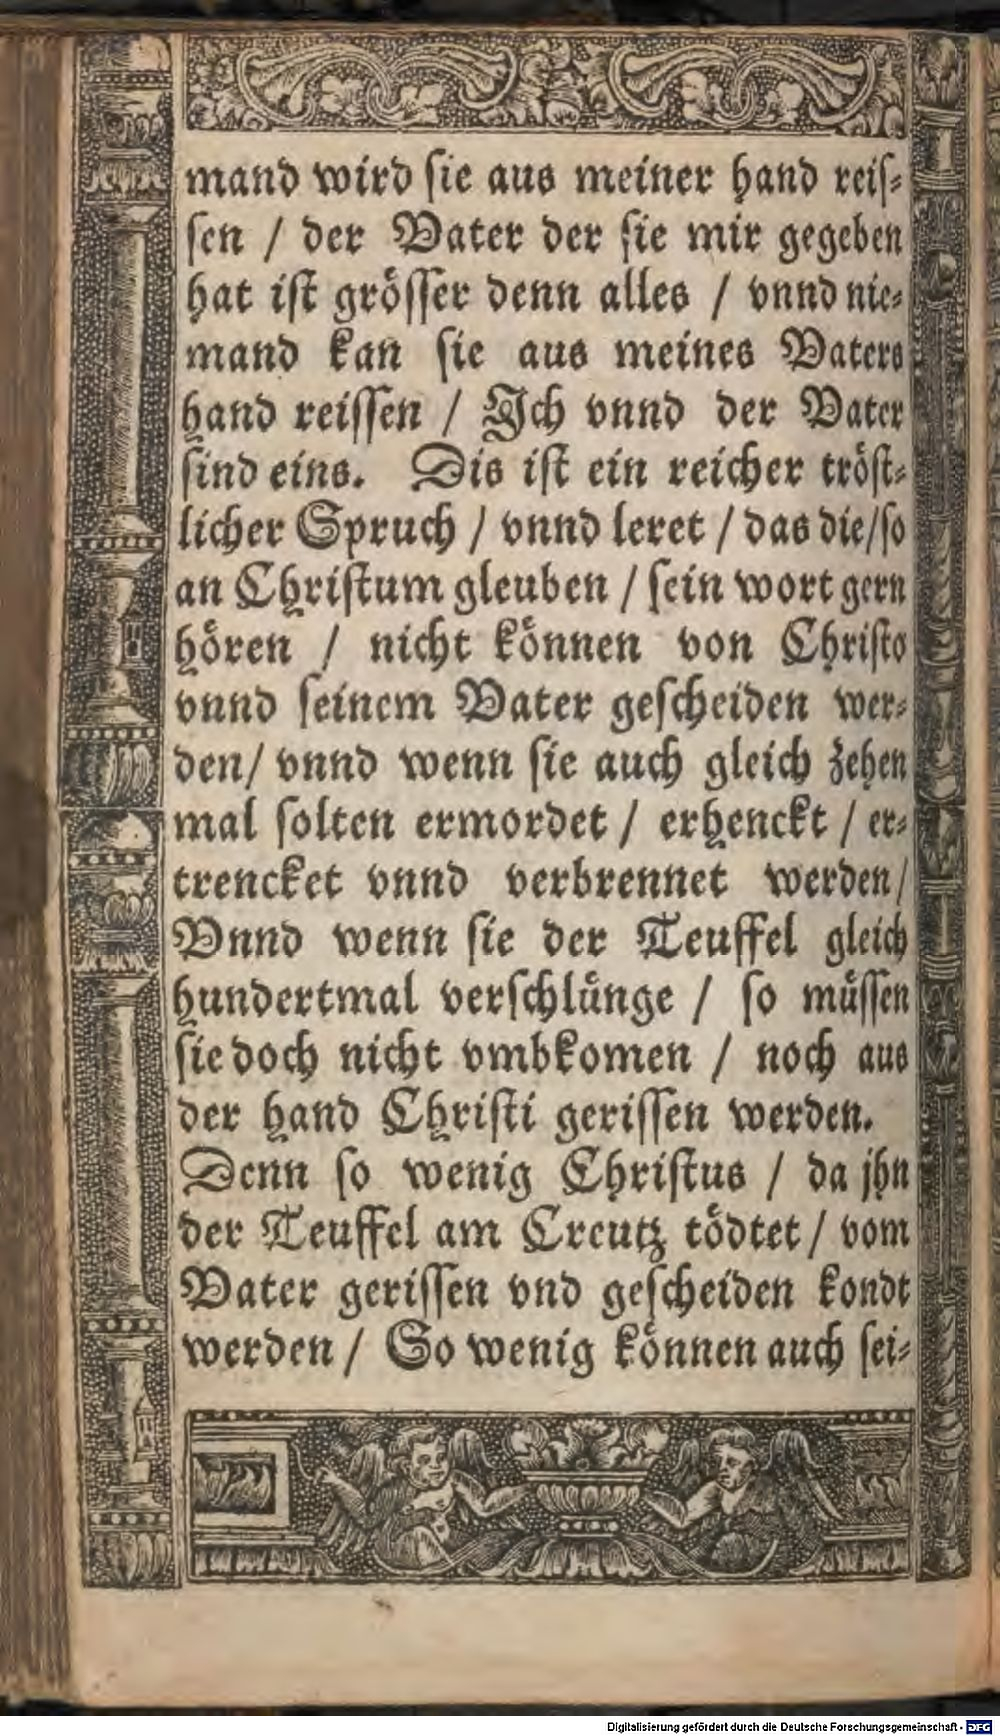 mand wird ſie aus meiner hand reiſ⸗
ſen / der Vater der ſie mir gegeben
hat iſt gröſſer denn alles / vnnd nie⸗
mand kan ſie aus meines Vaters
hand reiſſen / Ich vnnd der Vater
ſind eins. Dis iſt ein reicher tröſt⸗
licher Spruch / vnnd leret / das die/ſo
an Chriſtum gleuben / ſein wort gern
hören / nicht können von Chriſto
vnnd ſeinem Vater geſcheiden wer⸗
den/ vnnd wenn ſie auch gleich zehen
mal ſolten ermordet / erhenckt / er⸗
trencket vnnd verbrennet werden/
Vnnd wenn ſie der Teuffel gleich
hundertmal verſchlünge / ſo müſſen
ſie doch nicht vmbkomen / noch aus
der hand Chriſti geriſſen werden.
Denn ſo wenig Chriſtus / da jhn
der Teuffel am Creutz tödtet / vom
Vater geriſſen vnd geſcheiden kondt
werden / So wenig können auch ſei⸗
Digitalisierung gefördert durch die Deutsche Forschungsgemeinschaft - DFG